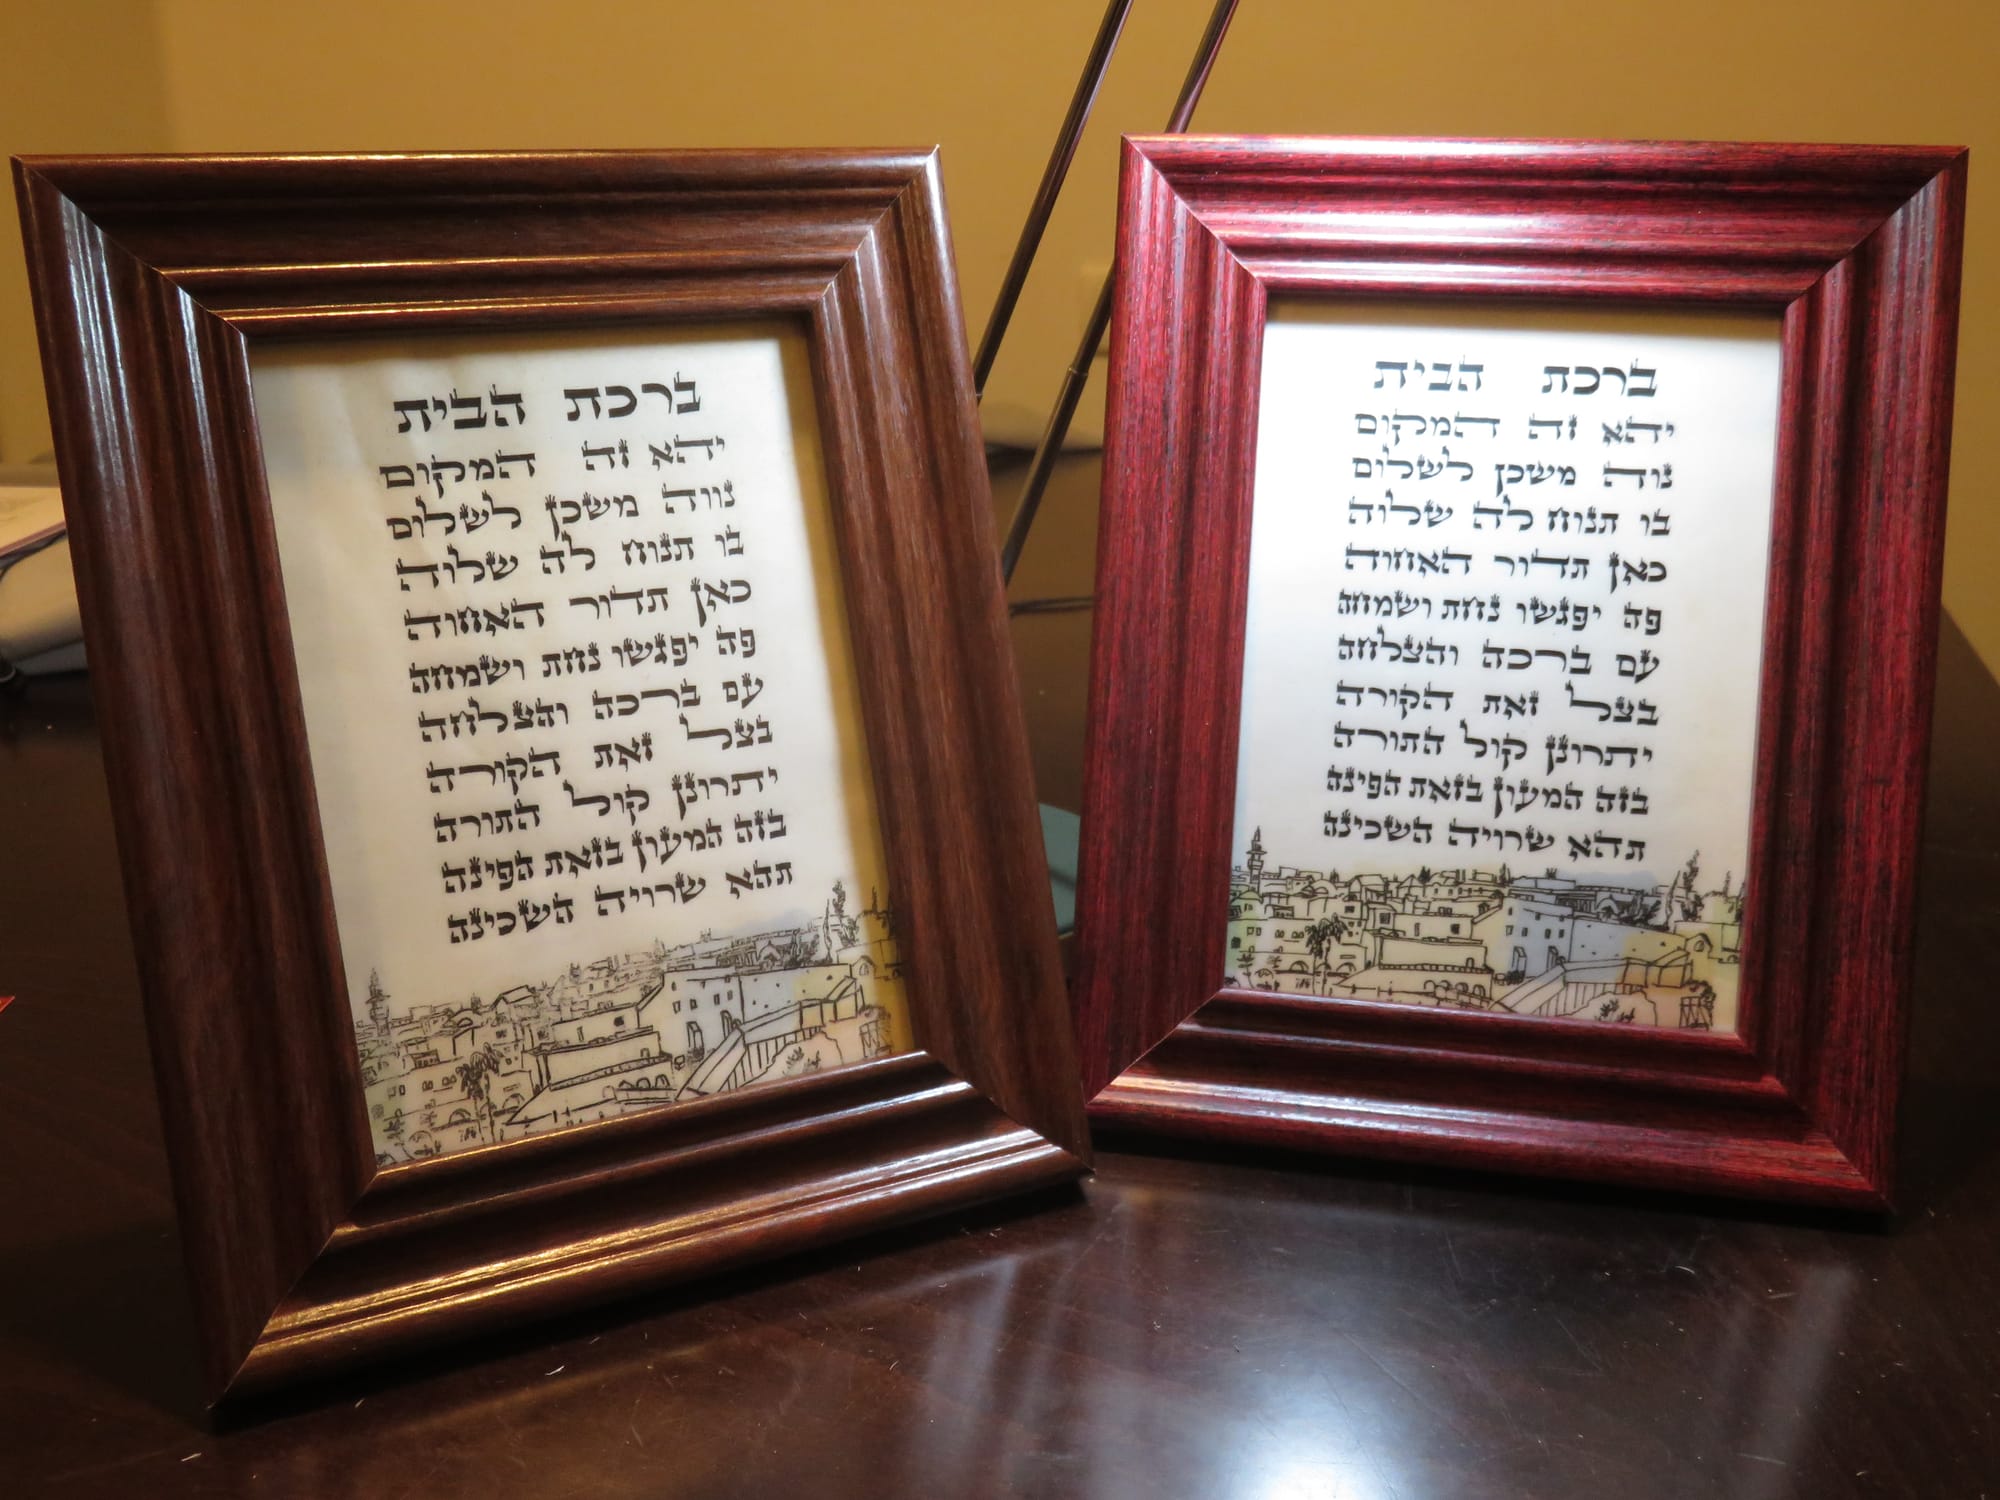 ברכת הבית
יהא זה המקום
נוה משכן לשלום
בו תנוח לה שלוה
כאן תדור האחוה
פה יפגשו נחת ושמחה
עם ברכה והצלחה
בצל זאת הקורה
יתרונן קול התורה
בזה המעון בזאת הפינה
תהא שרויה השכינה
ברכת הבית
יהא זה המקום
נווה משכן לשלום
בו תנוח לה שלוה
כאן תדור האחוה
פה יפגשו נחת ושמחה
עם ברכה והצלחה
בצל זאת הקורה
יתרונן קול התורה
בזה המעון בזאת הפינה
תהא שרויה השכינה